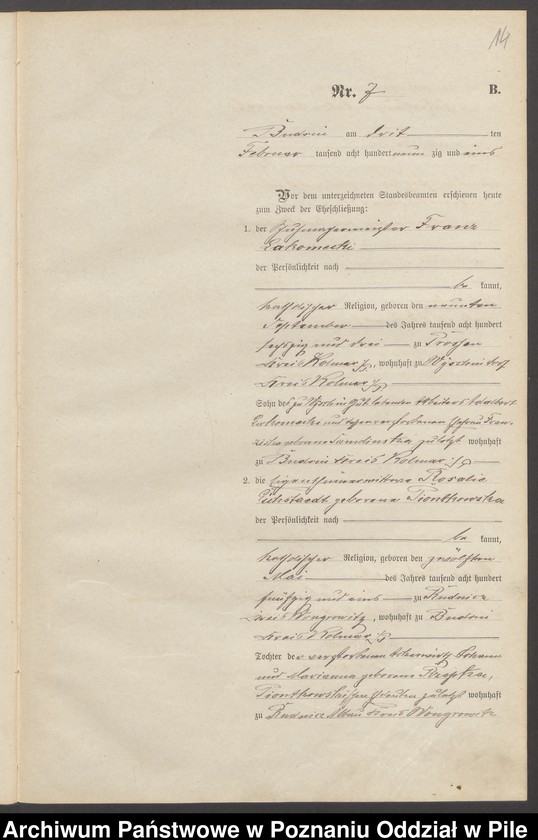 14
Nr. 7 B.
Budsin am drit ten
Februar tausend acht hundert neun zig und eins
Vor dem unterzeichneten Standesbeamten erschienen heute
zum Zweck der Eheschließung:
1. der Schuhmachermeister Franz
Lakomecki
der Persönlichkeit nach
be kannt,
katholischer Religion, geboren den neunten
September des Jahres tausend acht hundert
sechszig und drei zu
Kreis Kolmar i/P, wohnhaft zu
Kreis Kolmar i/P
Sohn des zu lebenden Arbeiters Adalbert
Lakomecki und dessen verstorbenen Ehefrau Fran-
ziska geborene zuletzt wohnhaft
zu Budsin Kreis Kolmar i/P
2. die Eigenthümerwittwe Rosalie
geborene Piontkowska
der Persönlichkeit nach
be kannt,
katholischer Religion, geboren den zwölften
Mai des Jahres tausend acht hundert
fünfzig und eins zu Rudnicz
Kreis Wongrowitz, wohnhaft zu Budsin
Kreis Kolmar i/P
Tochter der verstorbenen Ackerwirth Johann
und Marianna geborene Rzepka,
Piontkowskischen Eheleute zuletzt wohnhaft
zu Rudnicz Kreis Wongrowitz
Archiwum Państwowe w Poznaniu Oddział w Pile